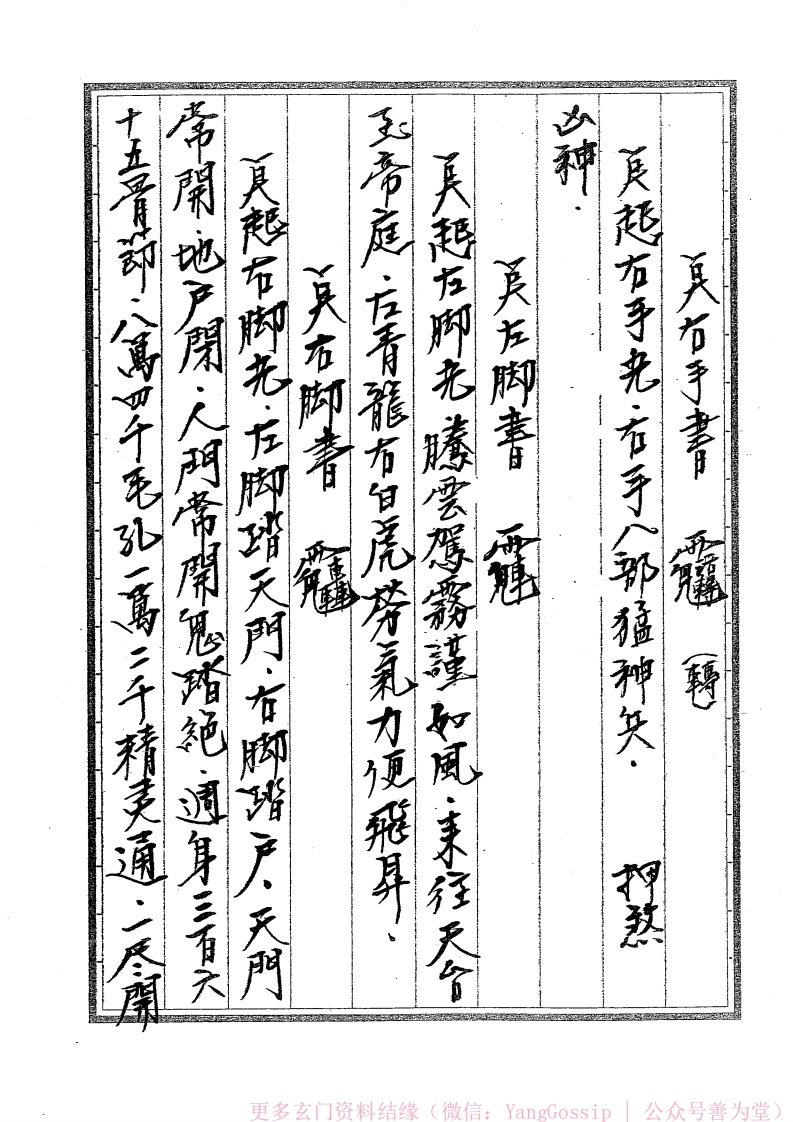 右手書 (轉)
起右手光.右手八部猛神兵. 押煞
凶神.
左脚書
起左脚光騰雲駕霧謹如風.来往天台
至帝庭.左青龍右白虎劳氣力便飛昇.
右脚書
起右脚光.左脚踏天門.右脚踏户.天門
常開.地户閉.人門常開鬼踏絕.週身三百六
十五骨節.八萬四千毛孔一萬二千精灵通.一尽開
更多玄门资料结缘（微信：YangGossip | 公众号善为堂）